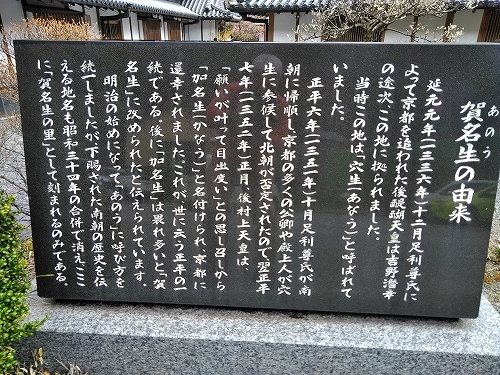 賀名生の由来
あのう
延元元年(一三三六年)十二月足利尊氏に
よって京都を追われた後醍醐天皇は吉野潜幸
の途次、この地に拠られました。
当時この地は「穴生(あなう)」と呼ばれて
いました。
正平六年(一三五一年)十月足利尊氏が南
朝に帰順し京都の多くの公卿や殿上人が穴
生に参候して北朝が否定されたので翌正平
七年(一三五二年)正月、後村上天皇は、
「願いが叶って目出度い」との思し召しから
「加名生(かなう)」と名付けられ、京都に
還幸されました。これが、世に云う正平の一
統である。後に「加名生」は畏れ多いと、「賀
名生」に改められたと伝えられています。
明治の始めになって「あのう」に呼び方を
統一しましたが、下賜された南朝の歴史を伝
える地名も昭和三十四年の合併で消え、ここ
に「賀名生の里」として刻まれるのみである。